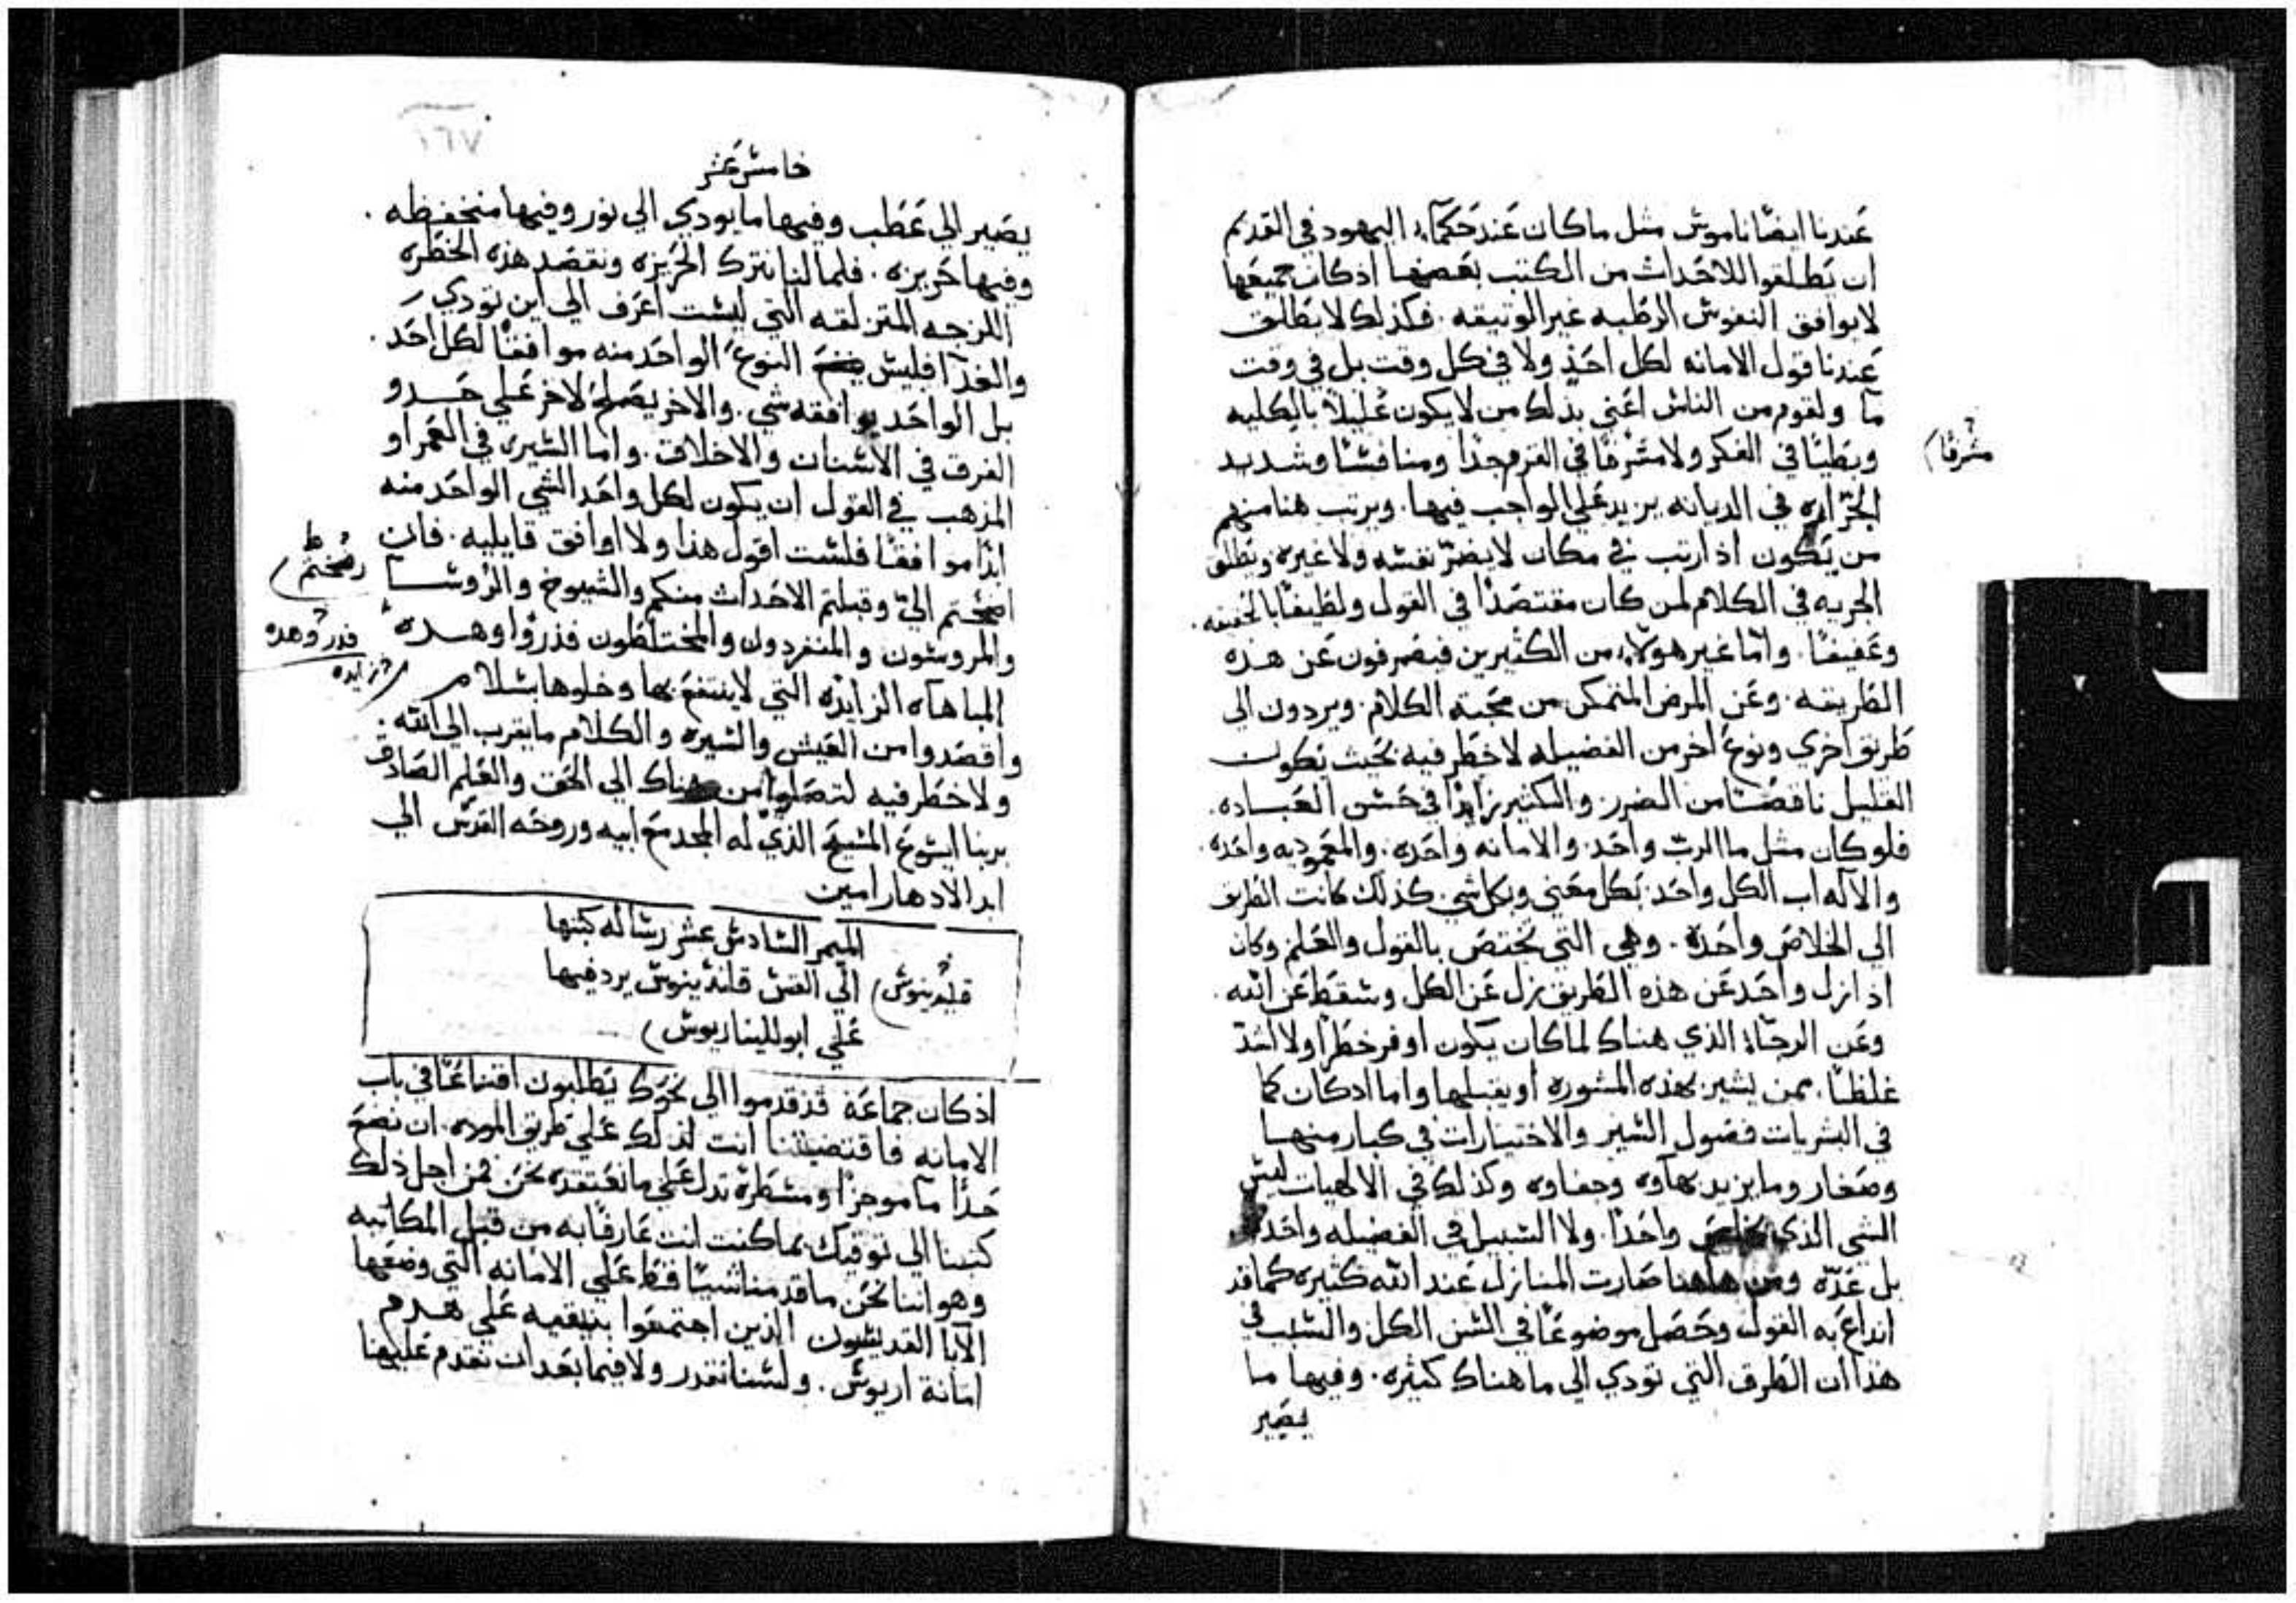 عندنا ايضًا ناموس مثل ماكان عند حكمآء اليهود في القديم
ان تطلقوا للاحداث من الكتب بعضها اذ كان جميعها
لا يوافق النفوس الرطبه غير الوثيقه. فكذلك لا يطلق
عندنا قول الامانه لكل احد ولا في كل وقت بل في وقت
ما ولقوم من الناس اعني بذلك من لا يكون عليلاً بالكليه
وبطيًا في الفكر ولا مشرفًا في العزم جدًا ومنافسًا وشديد
مشرفًا
الحراره في الديانه يزيد علي الواجب فيها. ويرتب هنا منهم
من يكون اذا رتب في مكان لا يضرّ نفسه ولا غيره ويطلق
الحريه في الكلام لمن كان مقتصدًا في القول ولطيفًا بالحقيقه.
وعفيفًا. وامّا غير هولآء من الكثيرين فيصرفون عن هذه
الطريقه. وعن المرض المتمكن من محبة الكلام. ويردون الي
طريق اخري ونوع اخر من الفضيله لا خطر فيه بحيث يكون
القليل ناقصًا من الضرر. والكثير زايدًا في حسن العباده.
فلو كان مثل ما الرب واحد. والامانه واحده. والمعموديه واحده.
والآله اب الكل واحد بكل معني وبكل شي. كذلك كانت الطريق
الي الخلاص واحدة. وهي التي تختص بالقول والعلم وكان
اذا زل واحد عن هذه الطريق يزل عن الكل وسقط عن الله.
وعن الرجآء الذي هناك لما كان يكون اوفر خطرًا ولا اشدّ
غلظًا. ممن يشير بهذه المشوره او يقبلها واما اذ كان كما
في البشريات فصول السير والاختيارات في كبار منها
وصغار وما يزيد بهآوه وجفاوه وكذلك في الالهيات ليس
الشي الذي واحدًا. ولا السبيل في الفضيله واحده
بل عدّه ومن هاهنا صارت المنازل عند الله كثيره كما قد
انذاع به القول وحصل موضوعًا في السن الكل والسبب في
هذا ان الطرق التي تودي الي ما هناك كثيره. وفيها ما
يصير
١٦٧
خامس عشر
يصير الي عطب وفيها ما يودي الي نور وفيها منخفظه.
وفيها حريزه. فلما لنا نترك الحريزه ونقصد هذه الخطره
اللزجه المتزلقه التي ليست اعرف الي اين تودي
والغذآ فليس النوع الواحد منه موافقًا لكل احد.
بل الواحد يوافقه شي. والاخر يصلح لاخر علي حدو
الفرق في الاسنان والاخلاق. واما السيره في العمر او
المذهب في القول ان يكون لكل واحد الشي الواحد منه
ابدًا موافقًا فلست اقول هذا ولا اوافق قايليه. فان
اصختم اليّ وقبلتم الاحداث منكم والشيوخ والروسا
رضختم ط
والمروسون والمنفردون والمختلطون فذروا وهده
فذروهده
المباهاه الزايده التي لا ينتفع بها وخلوها بسلام
زايده
واقصدوا من العيش والسيره والكلام ما يقرب الي الله.
ولا خطر فيه لتصلوا من هناك الي الحق والعلم الصادق
بربنا ايسوع المسيح الذي له المجد مع ابيه وروحه القدس الي
ابد الادهار امين
الميمر السادس عشر رساله كتبها
الي القس قانذينوس يرد فيها
قليدينوس
علي ابولليناريوس
اذ كان جماعة قد قدموا الي نحوك يطلبون اقتناعًا في باب
الامانه فاقتضيتنا انت لذلك علي طريق الموده. ان نضع
حدًا ما موجزًا ومسطرة تدل علي ما نعتقده نحن فمن اجل ذلك
كتبنا الي توقيك بما كنت انت عارفًا به من قبل المكاتبه
وهو اننا نحن ما قدمنا شيًا قط علي الامانه التي وضعها
الآبا القديسون الذين اجتمعوا بنيقيه علي هدم
امانة اريوس. ولسنا نقدر ولا فيما بعد ان نقدم عليها